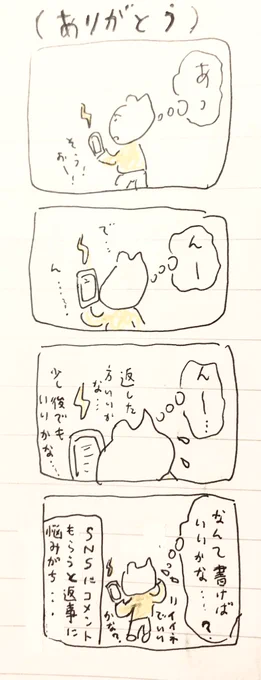 （ありがとう）
あっ
そう！
おー！
んー
で…
ん…？
んー…
返した
方いいか
な…
少し後でも
いいかな…
なんて書けば
いいかな…？
イイネ
でいい
かな？
SNSにコメント
もらうと返事に
悩みがち…